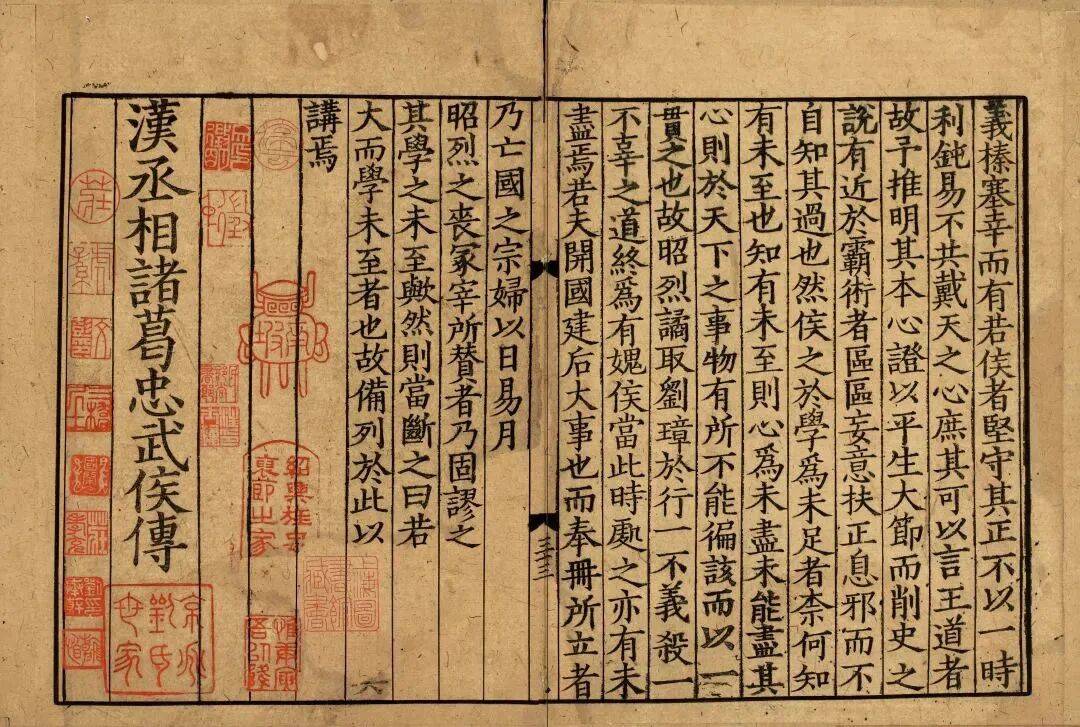 義榛塞幸而有若侯者堅守其正不以一時
利鈍易不共戴天之心庶其可以言王道者
故予推明其本心證以平生大節而削史之
說有近於霸術者區區妄意扶正息邪而不
自知其過也然侯之於學爲未足者柰何知
有未至也知有未至則心爲未盡未能盡其
心則於天下之事物有所不能徧該而以一
貫之也故昭烈譎取劉璋於行一不義殺一
不辜之道終爲有媿侯當此時處之亦有未
盡焉若夫開國建后大事也而奉冊所立者
三十三
乃亡國之宗婦以日易月
昭烈之喪冢宰所賛者乃固謬之
其學之未至歟然則當斷之曰若
大而學未至者也故備列於此以
講焉
漢丞相諸葛忠武侯傳
京兆
劉氏
世家